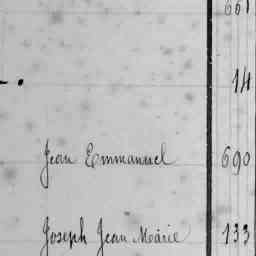 661
14
Jean Emmanuel 690
Joseph Jean Marie 133